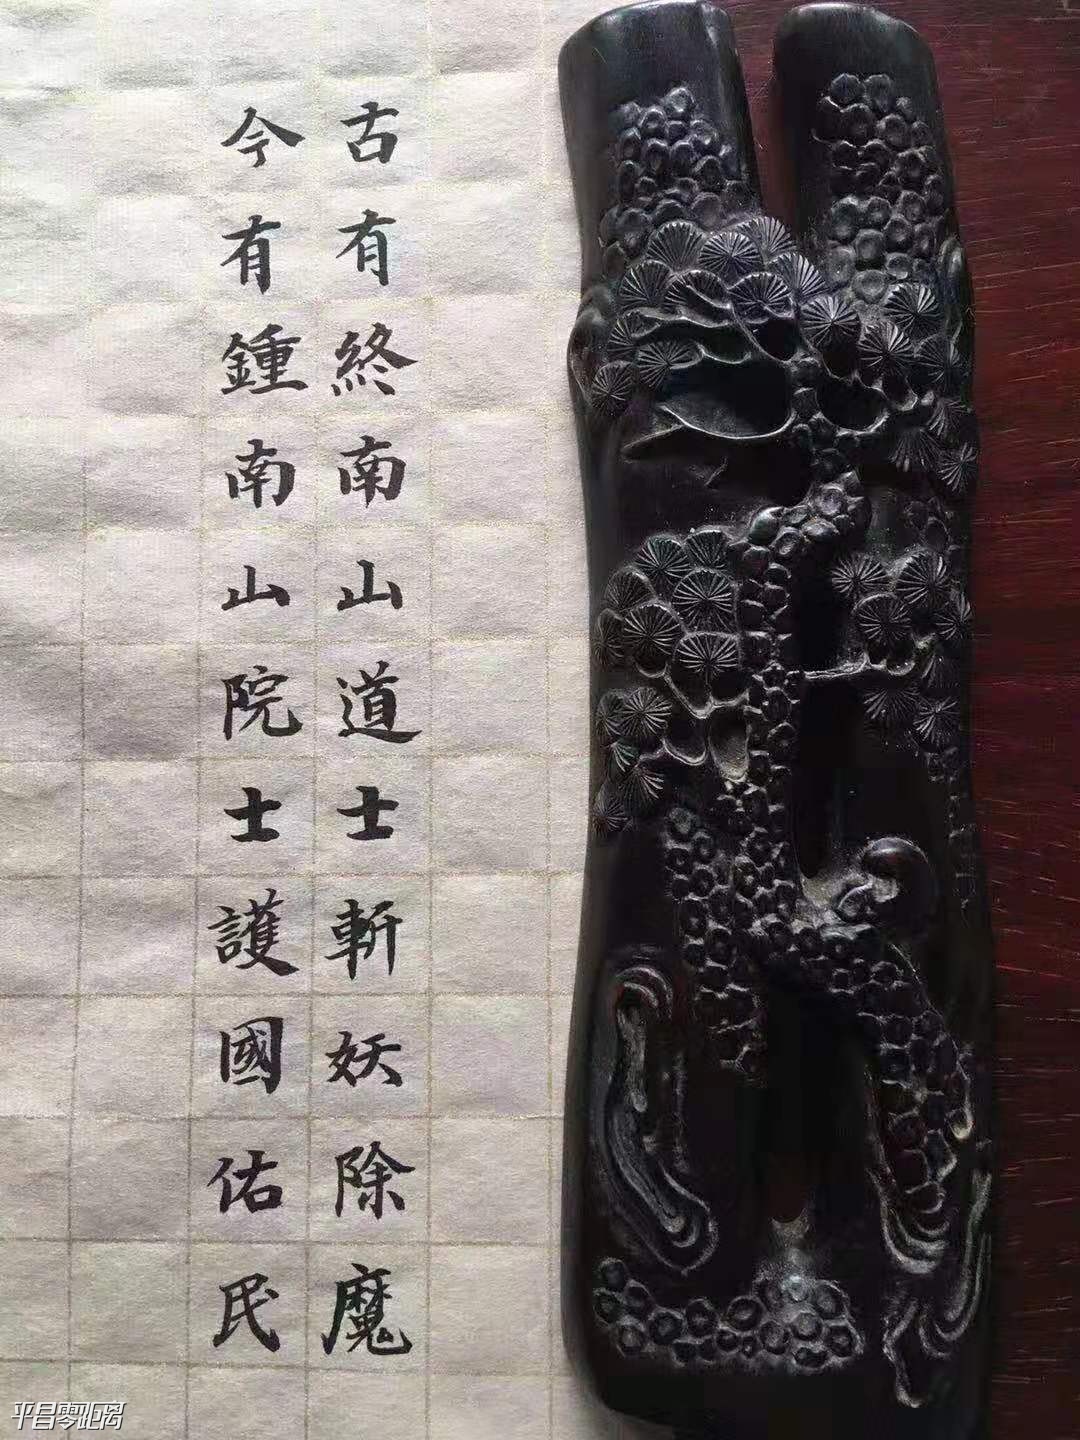 古有終南山道士斬妖除魔
今有鍾南山院士護國佑民
平昌零距离